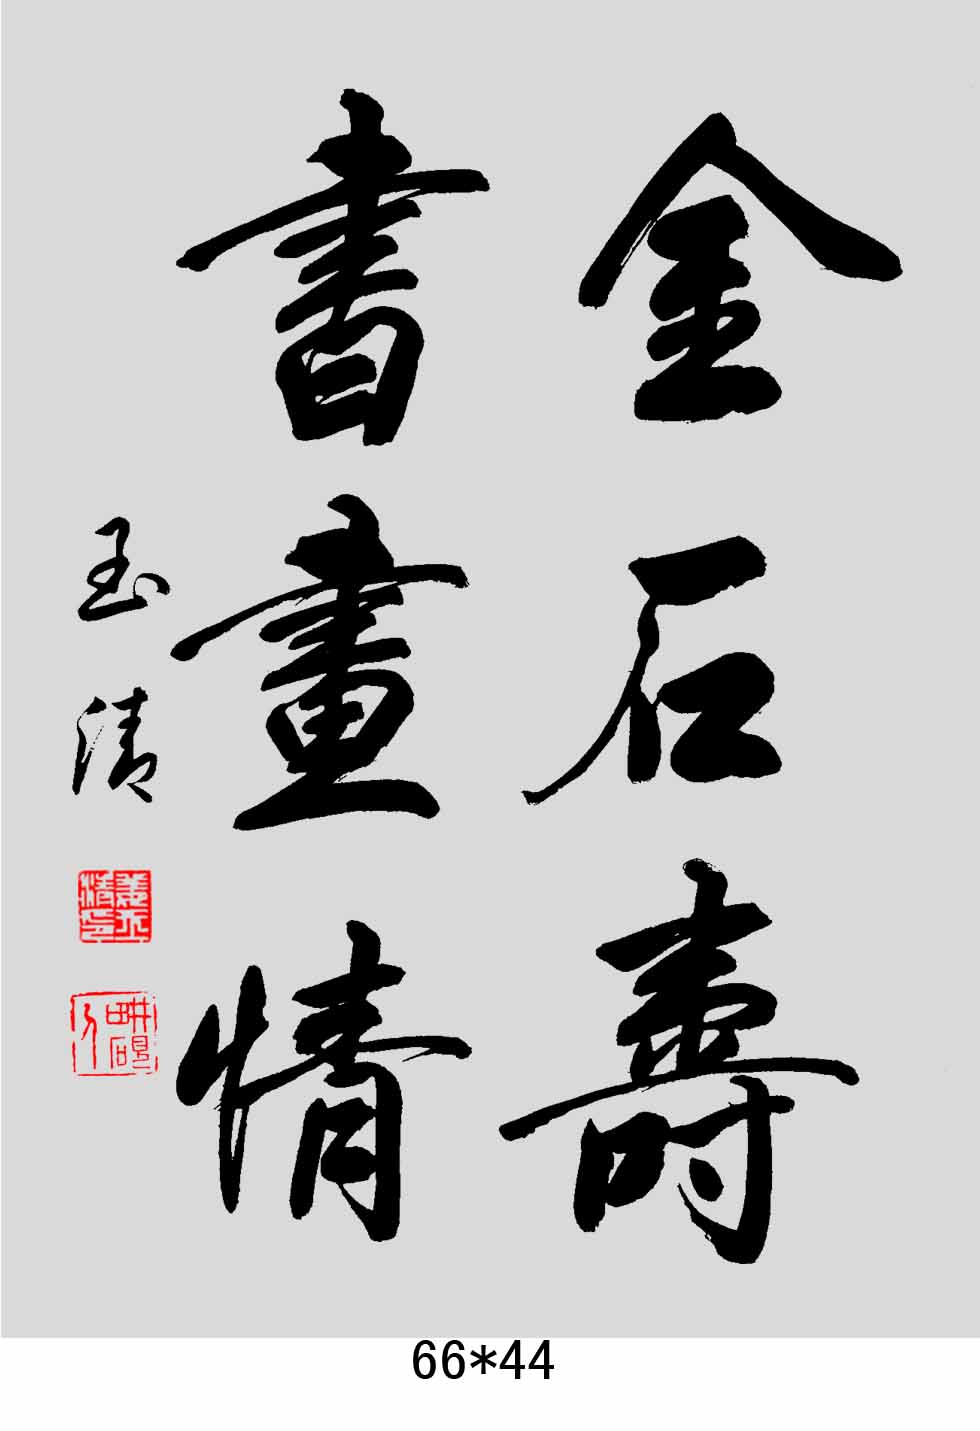 金石壽
書畫情
玉清
66*44